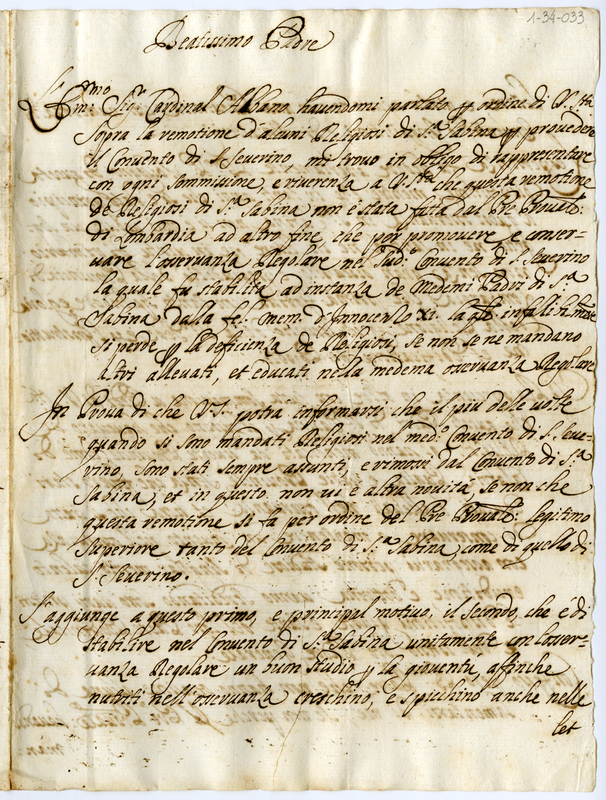 1-34-033
Beatissimo Padre
L'Em.mo Sig.r Cardinal Albano havendomi parlato p ordine di V. S.tà
sopra la remotione d'alcuni Religiosi di S.ta Sabina p provedere
il Convento di S. Severino, mi trovo in obligo di rappresentare
con ogni sommissione, e riverenza a V. S.tà che questa remotione
de Religiosi di S.ta Sabina non è stata fatta dal Pre Provale.
di Lombardia ad altro fine, che per promovere, e conser-
vare l'osservanza Regolare nel sud.o Convento di S. Severino
la quale fu stabilita ad instanza de medemi Padri di S.a
Sabina dalla fe. mem. d'Innocenzo XI. la qle infallibilmte
si perde p la deficienza de Religiosi, se non se ne mandano
altri allevati, et educati nella medema osservanza Regolare
In Prova di che V. S. potrà informarsi che il più delle volte
quando si sono mandati Religiosi nel med.o Convento di S. Seve-
rino, sono stati sempre assunti, e rimossi dal Convento di S.a
Sabina, et in questo non vi è altra novità, se non che
questa remotione si fa per ordine del Pre Provale. legitimo
superiore tanto del Convento di S.a Sabina come di quello di
S. Severino.
S'aggiunge a questo primo, e principal motivo, il secondo, che è di
stabilire nel Convento di S.a Sabina unitamente con l'osser-
vanza Regolare un buon studio p la gioventù, affinche
nutriti nell'osservanza creschino, e spicchino anche nelle
let